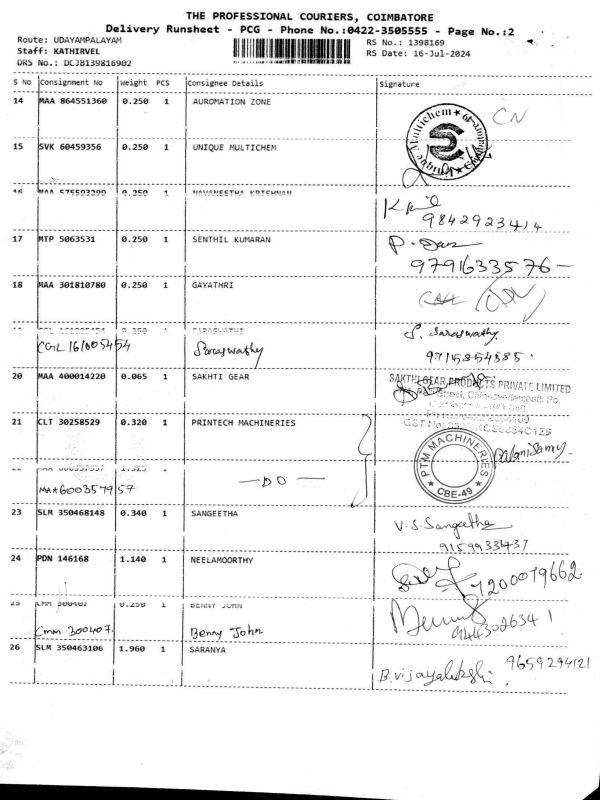 THE PROFESSIONAL COURIERS, COIMBATORE
Delivery Runsheet - PCG - Phone No.:0422-3505555 - Page No.:2
Route: UDAYAMPALAYAM
RS No.: 1398169
Staff: KATHIRVEL
RS Date: 16-Jul-2024
DRS No.: DCJB139816902
S No Consignment No Weight PCS Consignee Details Signature
14 MAA 864551360 0.250 1 AUROMATION ZONE
CN
15 SVK 60459356 0.250 1 UNIQUE MULTICHEM
Unique Multichem
16 MAA 575593299 0.250 1 NAVANEETHA KRISHNAN
9842923414
17 MTP 5063531 0.250 1 SENTHIL KUMARAN
9791633576-
18 MAA 301810780 0.250 1 GAYATHRI
CGL 161005454 Saraswathy
S. Saraswathy
9715854585.
20 MAA 400014220 0.065 1 SAKHTI GEAR
SAKTHI GEAR PRODUCTS PRIVATE LIMITED
21 CLT 30258529 0.320 1 PRINTECH MACHINERIES
PTM MACHINERIES
CBE-49
MAA 600357957 -DO-
23 SLM 350468148 0.340 1 SANGEETHA
V.S. Sangeetha
9159933437
24 PDN 146168 1.140 1 NEELAMOORTHY
7200079662
25 CMM 300407 0.250 1 BENNY JOHN
Cmm 300407. Benny John
26 SLM 350463106 1.960 1 SARANYA
9659294121
B.vijayalakshi.